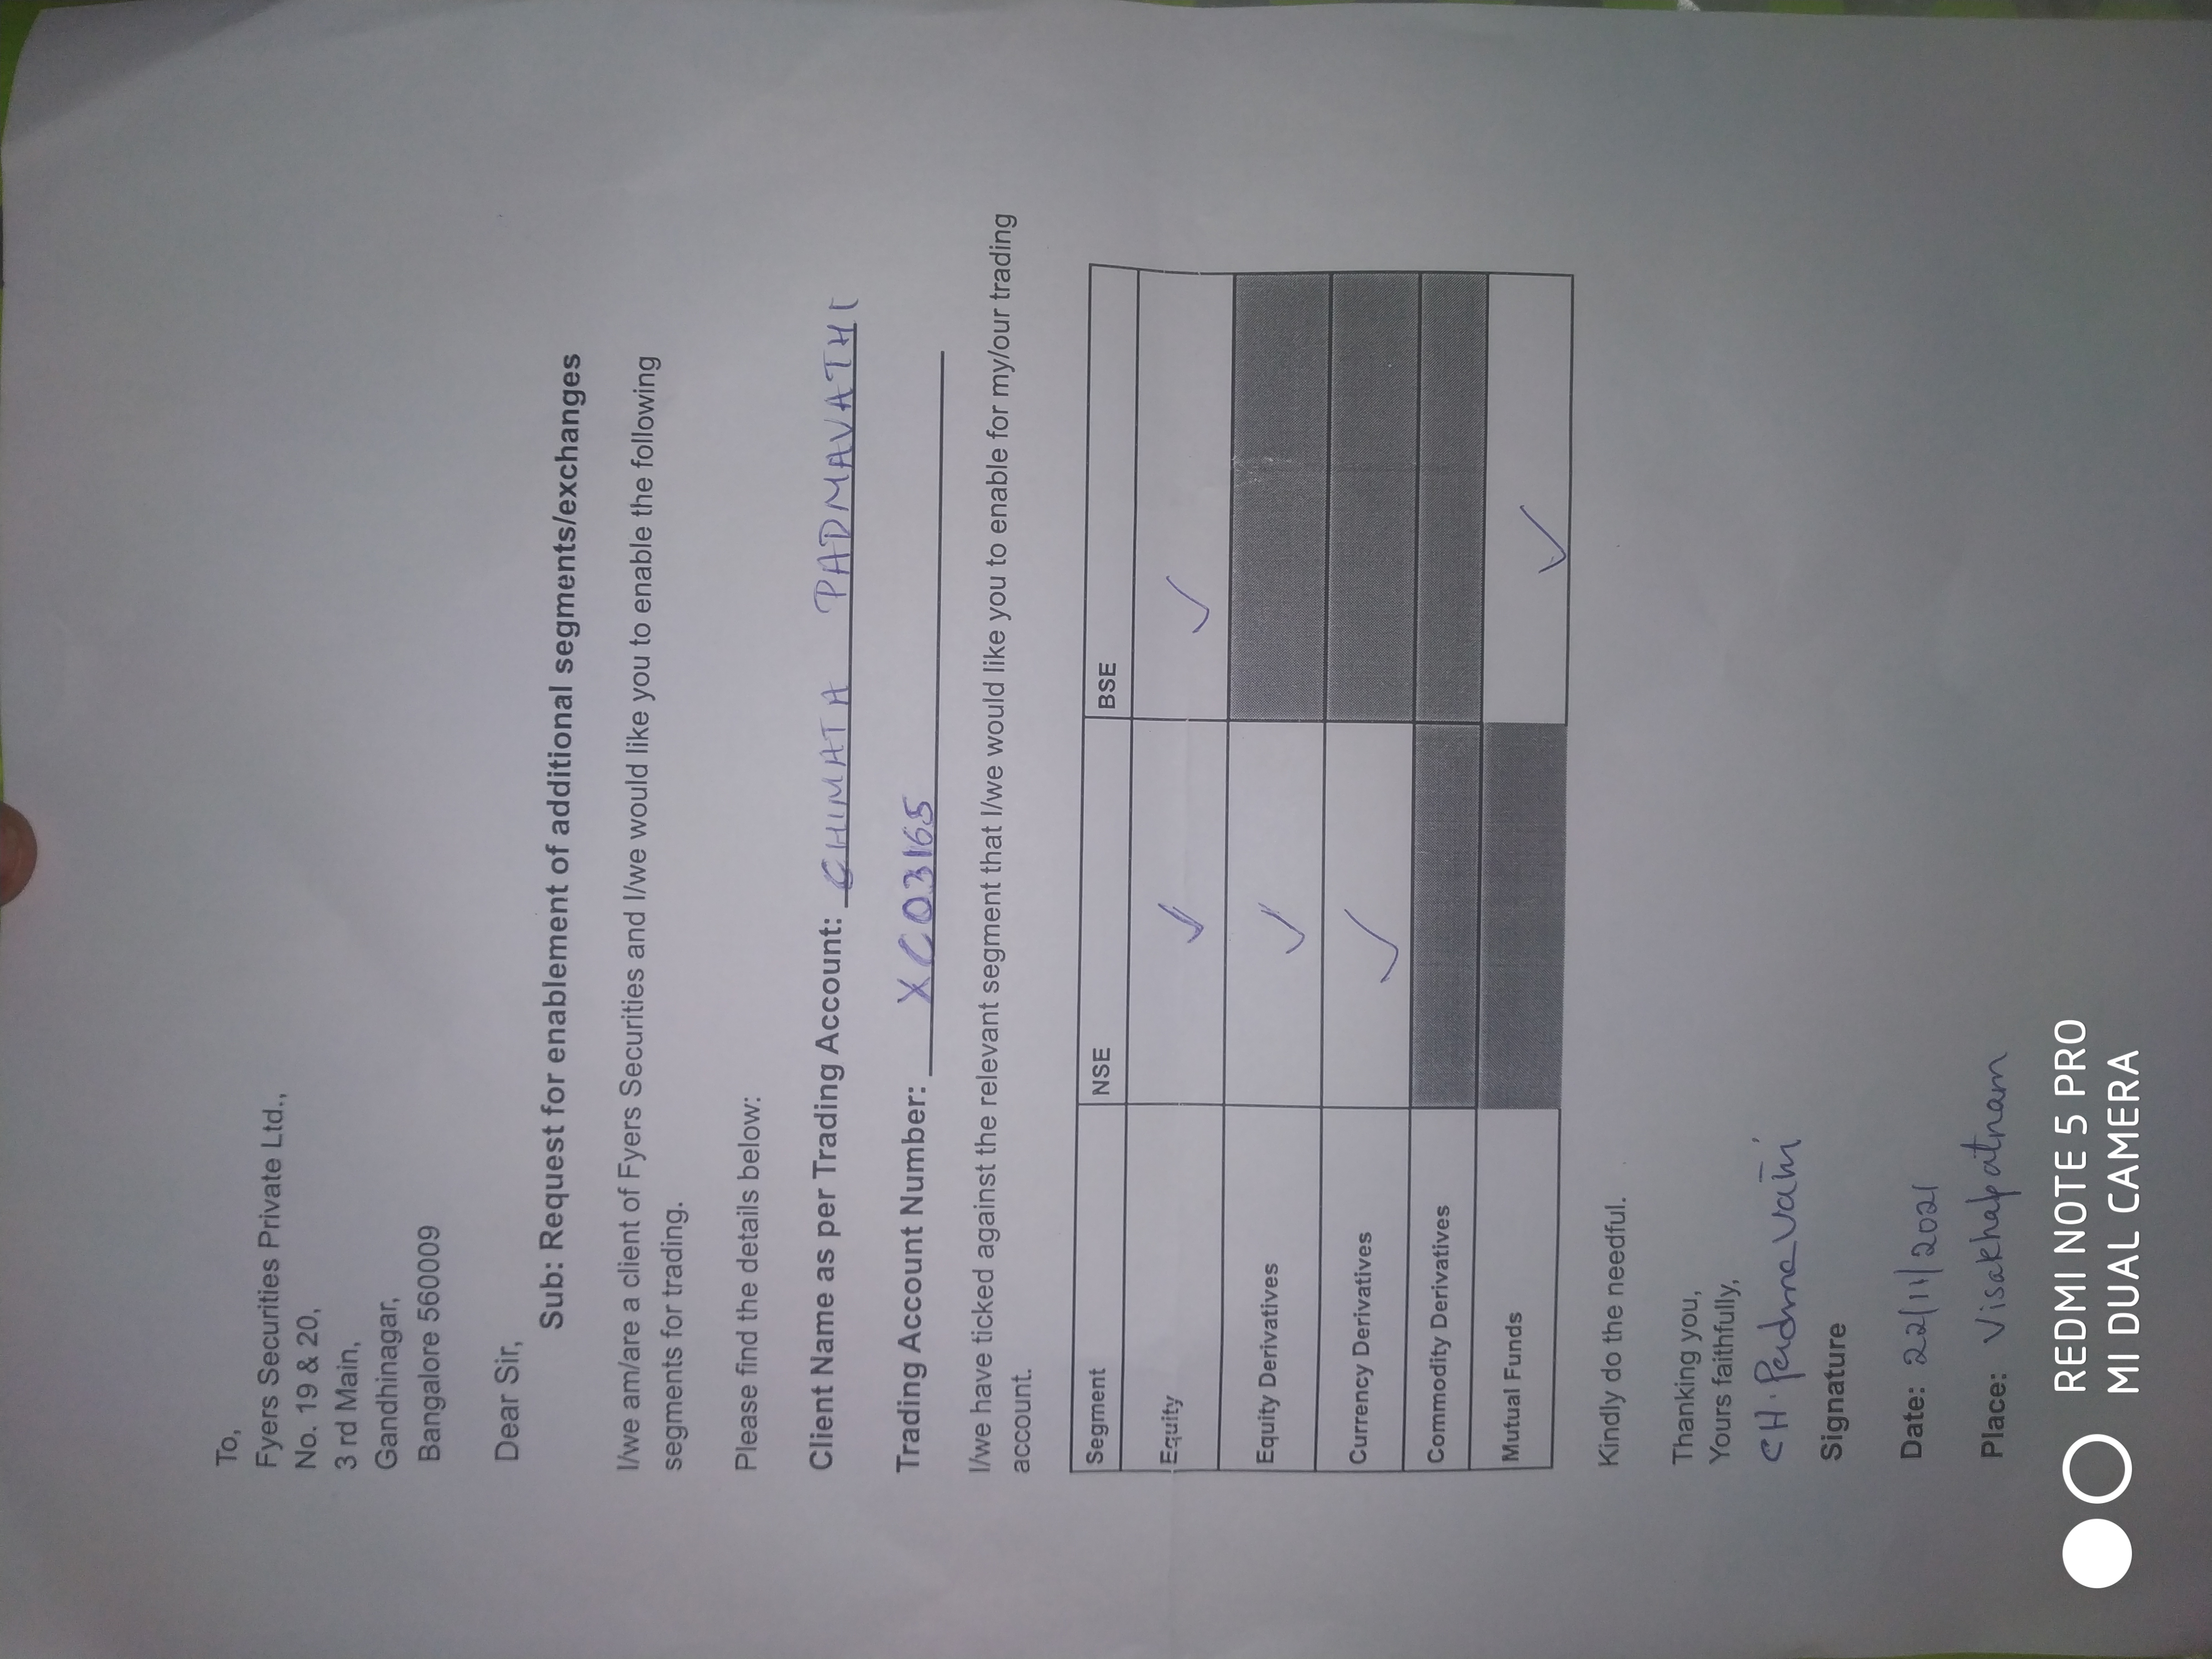 To,
Fyers Securities Private Ltd.,
No. 19 & 20,
3 rd Main,
Gandhinagar,
Bangalore 560009
Dear Sir,
Sub: Request for enablement of additional segments/exchanges
I/we am/are a client of Fyers Securities and I/we would like you to enable the following
segments for trading.
Please find the details below:
Client Name as per Trading Account: CHIMATA PADMAVATHI
Trading Account Number: XC03165
I/we have ticked against the relevant segment that I/we would like you to enable for my/our trading
account.
Segment NSE BSE
Equity ✓ ✓
Equity Derivatives ✓
Currency Derivatives ✓
Commodity Derivatives
Mutual Funds ✓
Kindly do the needful.
Thanking you,
Yours faithfully,
CH. Padmavati
Signature
Date: 22/11/2021
Place: Visakhapatnam
REDMI NOTE 5 PRO
MI DUAL CAMERA